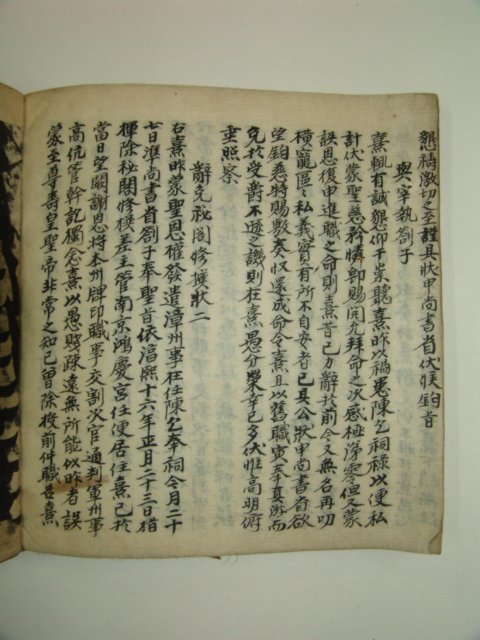 懇禱激切之至謹具狀申尚書省伏候鈞旨
與宰執劄子
熹輒有誠懇仰干崇聽熹昨以禍患陳乞祠祿以便私
計伏蒙聖慈矜憐即賜開允拜命之次感極涕零但又蒙
誤恩復申進職之命則熹昔已力辭於前今又無名再叨
橫寵區〻私義實有所不自安者已具公狀申尚書省欲
望鈞慈特賜敷奏收還成命令熹且以舊職寅奉真游而
免於受爵不遜之譏則在熹愚分榮幸已多伏惟高明俯
垂照察
辭免祕閣修撰狀二
右熹昨蒙聖恩權發遣漳州事在任陳乞奉祠今月二十
七日準尚書省劄子奉聖旨依淈熙十六年正月二十三日指
揮除祕閣修撰差主管南京鴻慶宮任便居住熹已於
當日望闕謝恩將本州牌印職事交割次官通判軍州事
高伉管幹訖獨念熹以愚賤疎遠無所能似昨者誤
蒙至尊壽皇聖帝非常之知已曾除授前件職名熹